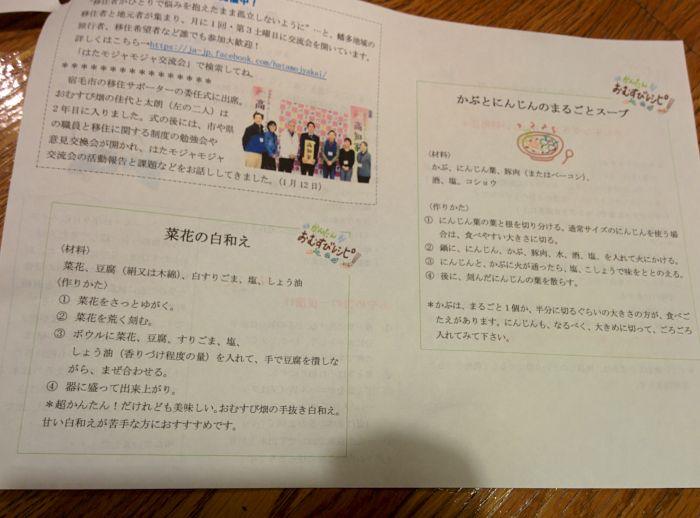 "移住者がひとりで悩みを抱えたまま孤立しないように"…と、幡多地域の
移住者と地元者が集まり、月に1回・第3土曜日に交流会を開いています。
旅行者、移住希望者など誰でも参加大歓迎！
詳しくはこちら→https://ja-jp.facebook.com/hatamojyakai/
「はたモジャモジャ交流会」で検索してね。
＊＊＊＊＊＊＊＊＊＊＊＊＊＊＊
宿毛市の移住サポーターの委任式に出席。
おむすび畑の佳代と太朗（左の二人）は
2年目に入りました。式の後には、市や県
の職員と移住に関する制度の勉強会や
意見交換会が開かれ、はたモジャモジャ
交流会の活動報告と課題などをお話ししてきました。（1月12日）
高知家
かんたん
おむすびレシピ！
菜花の白和え
〈材料〉
菜花、豆腐（絹又は木綿）、白すりごま、塩、しょう油
〈作りかた〉
① 菜花をさっとゆがく。
② 菜花を荒く刻む。
③ ボウルに菜花、豆腐、すりごま、塩、
しょう油（香りづけ程度の量）を入れて、手で豆腐を潰しな
がら、まぜ合わせる。
④ 器に盛って出来上がり。
＊超かんたん！だけれども美味しい。おむすび畑の手抜き白和え。
甘い白和えが苦手な方におすすすめです。
かんたん
おむすびレシピ！
かぶとにんじんのまるごとスープ
〈材料〉
かぶ、にんじん葉、豚肉（またはベーコン）、
酒、塩、コショウ
〈作りかた〉
① にんじん葉の葉と根を切り分ける。通常サイズのにんじんを使う場
合は、食べやすい大きさに切る。
② 鍋に、にんじん、かぶ、豚肉、水、酒、塩、を入れて火にかける。
③ にんじんと、かぶに火が通ったら、塩、こしょうで味をととのえる。
④ 後に、刻んだにんじんの葉を散らす。
＊かぶは、まるごと1個か、半分に切るぐらいの大きさの方が、食べご
たえがあります。にんじんも、なるべく、大きめに切って、ごろごろ
入れてみて下さい。